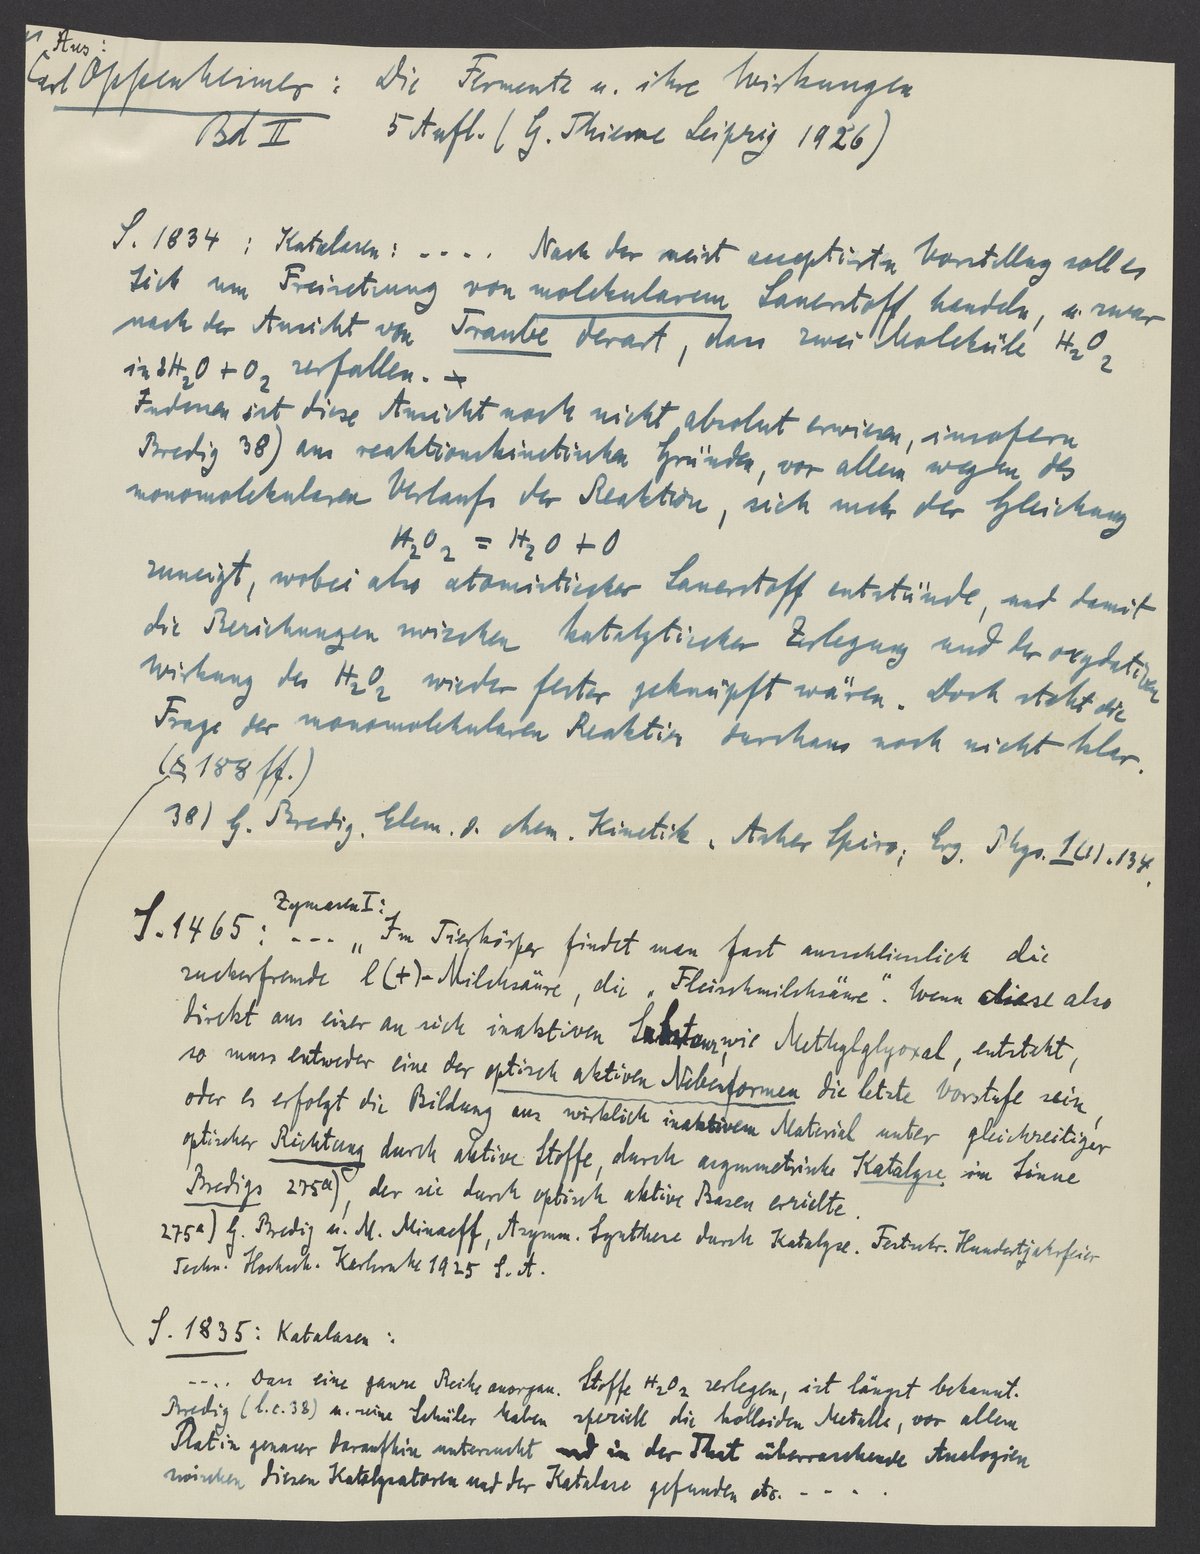 Aus:
Carl Oppenheimer: Die Fermente u. ihre Wirkungen
Bd II 5 Aufl. (G. Thieme Leipzig 1926)
S. 1834 : Katalasen: .... Nach der meist acceptirten Vorstellung soll es
sich um Freisetzung von molekularem Sauerstoff handeln, u. zwar
nach der Ansicht von Traube derart, dass zwei Moleküle H2O2
in 2H2O + O2 zerfallen.
Indessen ist diese Ansicht noch nicht absolut erwiesen, insofern
Bredig 38) aus reaktionskinetischen Gründen, vor allem wegen des
monomolekularen Verlaufs der Reaktion, sich mehr der Gleichung
H2O2 = H2O + O
zuneigt, wobei also atomistischer Sauerstoff entstünde, und damit
die Beziehungen zwischen katalytischer Zerlegung und der oxydativen
Wirkung des H2O2 wieder fester geknüpft wären. Doch steht die
Frage der monomolekularen Reaktion durchaus noch nicht klar.
(S 188 ff.)
38) G. Bredig, Elem. d. chem. Kinetik, Asher Spiro, Erg. Phys. 1 (1). 134.
Zymasen I:
S. 1465: --- „Im Tierkörper findet man fast ausschliesslich die
zuckerfremde l(+)-Milchsäure, die „Fleischmilchsäure“. Wenn diese also
direkt aus einer an sich inaktiven Substanz, wie Methylglyoxal, entsteht,
so muss entweder eine der optisch aktiven Nebenformen die letzte Vorstufe sein,
oder es erfolgt die Bildung aus wirklich inaktivem Material unter gleichzeitiger
optischer Richtung durch aktive Stoffe, durch asymmetrische Katalyse im Sinne
Bredigs 275a), der sie durch optisch aktive Basen erzielte.
275a) G. Bredig u. M. Minaeff, Asymm. Synthese durch Katalyse. Festschr. Hundertjahrfeier
Techn. Hochsch. Karlsruhe 1925 S. A.
S. 1835: Katalasen:
.... Dass eine ganze Reihe anorgan. Stoffe H2O2 zerlegen, ist längst bekannt.
Bredig (l.c. 38) u. seine Schüler haben speziell die kolloiden Metalle, vor allem
Platin genauer daraufhin untersucht und in der That überraschende Analogien
zwischen diesen Katalysatoren und der Katalase gefunden etc. - - - .